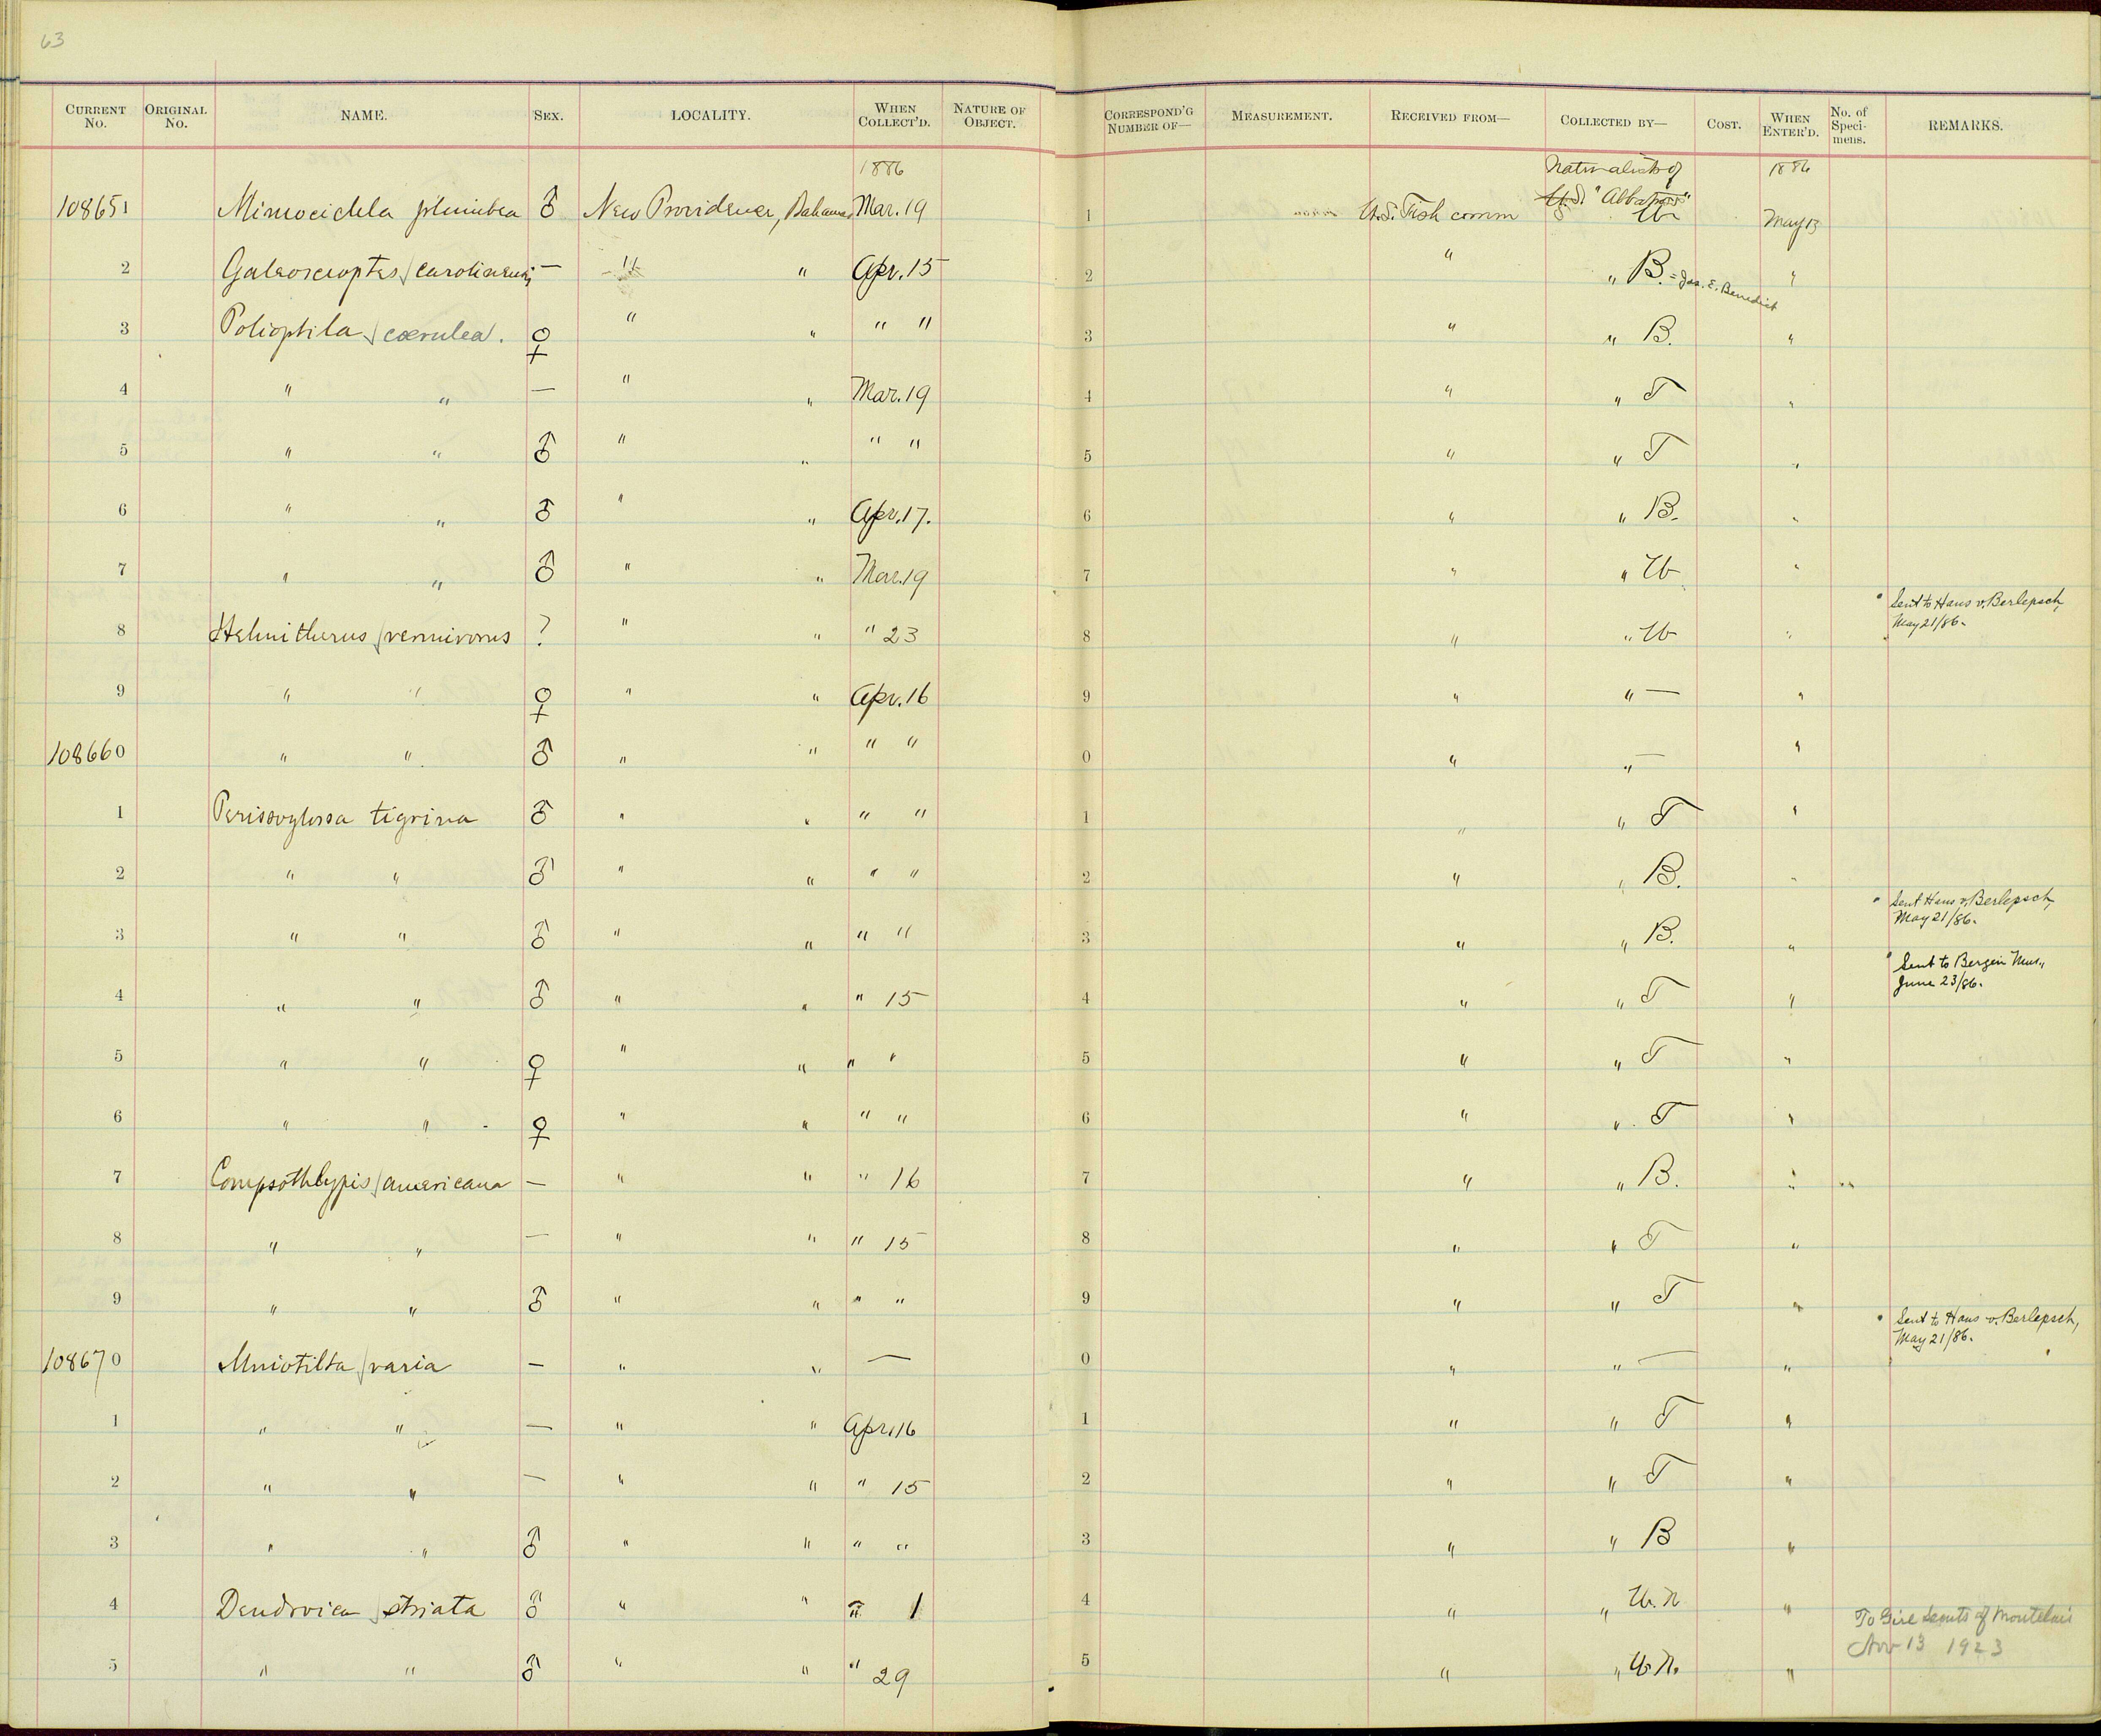 63
CURRENT No. ORIGINAL No. NAME. SEX. LOCALITY. WHEN COLLECT'D. NATURE OF OBJECT. CORRESPOND'G NUMBER OF— MEASUREMENT. RECEIVED FROM— COLLECTED BY— COST. WHEN ENTER'D. No. of Speci-mens. REMARKS.
1886 Naturalists of 1886
108651 Mimocichla plumbea ♂ New Providence, Bahamas Mar. 19 1 U.S. Fish comm U.S. "Albatross" May 13
2 Galeoscoptes carolinensis — " " Apr. 15 2 " " B. = Jas. E. Benedict "
3 Polioptila cœrulea. ♀ " " " " 3 " " B. "
4 " " — " " Mar. 19 4 " " T "
5 " " ♂ " " " " 5 " " T "
6 " " ♂ " " Apr. 17. 6 " " B. "
7 " " ♂ " " Mar. 19 7 " " "
8 Helmitherus vermivorus ? " " " 23 8 " " " Sent to Hans v. Berlepsch, May 21/86.
9 " " ♀ " " Apr. 16 9 " " — "
108660 " " ♂ " " " " 0 " " — "
1 Perissoglossa tigrina ♂ " " " " 1 " " T "
2 " " ♂ " " " " 2 " " B. "
3 " " ♂ " " " " 3 " " B. " Sent Hans v. Berlepsch, May 21/86.
4 " " ♂ " " " 15 4 " " T " Sent to Bergen Mus., June 23/86.
5 " " ♀ " " " " 5 " " T "
6 " " ♀ " " " " 6 " " T "
7 Compsothlypis americana — " " " 16 7 " " B. "
8 " " — " " " 15 8 " " T "
9 " " ♂ " " " " 9 " " T "
108670 Mniotilta varia — " " — 0 " " — " Sent to Hans v. Berlepsch, May 21/86.
1 " " — " " Apr. 16 1 " " T "
2 " " — " " " 15 2 " " T "
3 " " ♂ " " " " 3 " " B "
4 Dendroica striata ♂ " " " 1 4 " " "
5 " " ♂ " " " 29 5 " " " To Girl Scouts of Montclair Nov 13 1923